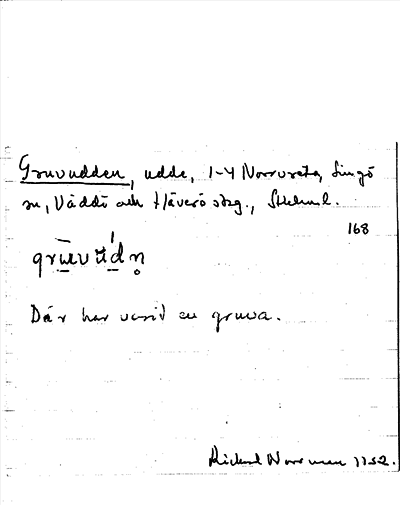 Gruvudden, udde, 1-4 Norrvreta, Singö
sn, Väddö och Häverö skg., Sthlms l.
168
Där har varit en gruva.
Rickard Norrman 1932.